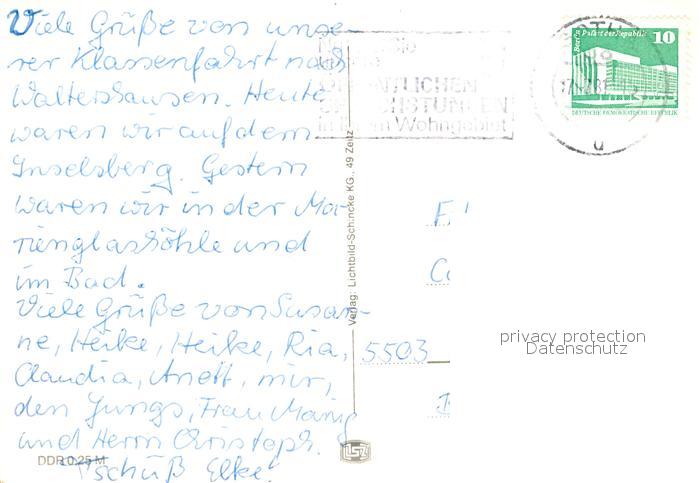 Viele Grüße von unse-
rer Klassenfahrt nach
Waltershausen. Heute
waren wir auf dem
Inselsberg. Gestern
waren wir in der Ma-
rienglashöhle und
im Bad.
Viele Grüße von Susan-
ne, Heike, Heike, Ria,
Claudia, Anett, mir,
den Jungs, Frau Manig
und Herrn Christoph.
Tschüß Elke!
DDR 0,25 M
Verlag: Lichtbild-Schincke KG., 49 Zeitz
LSZ
ÖFFENTLICHEN
SPRECHSTUNDEN
Wohngebiet
Berlin Palast der Republik
10
DEUTSCHE DEMOKRATISCHE REPUBLIK
u
5503
privacy protection
Datenschutz